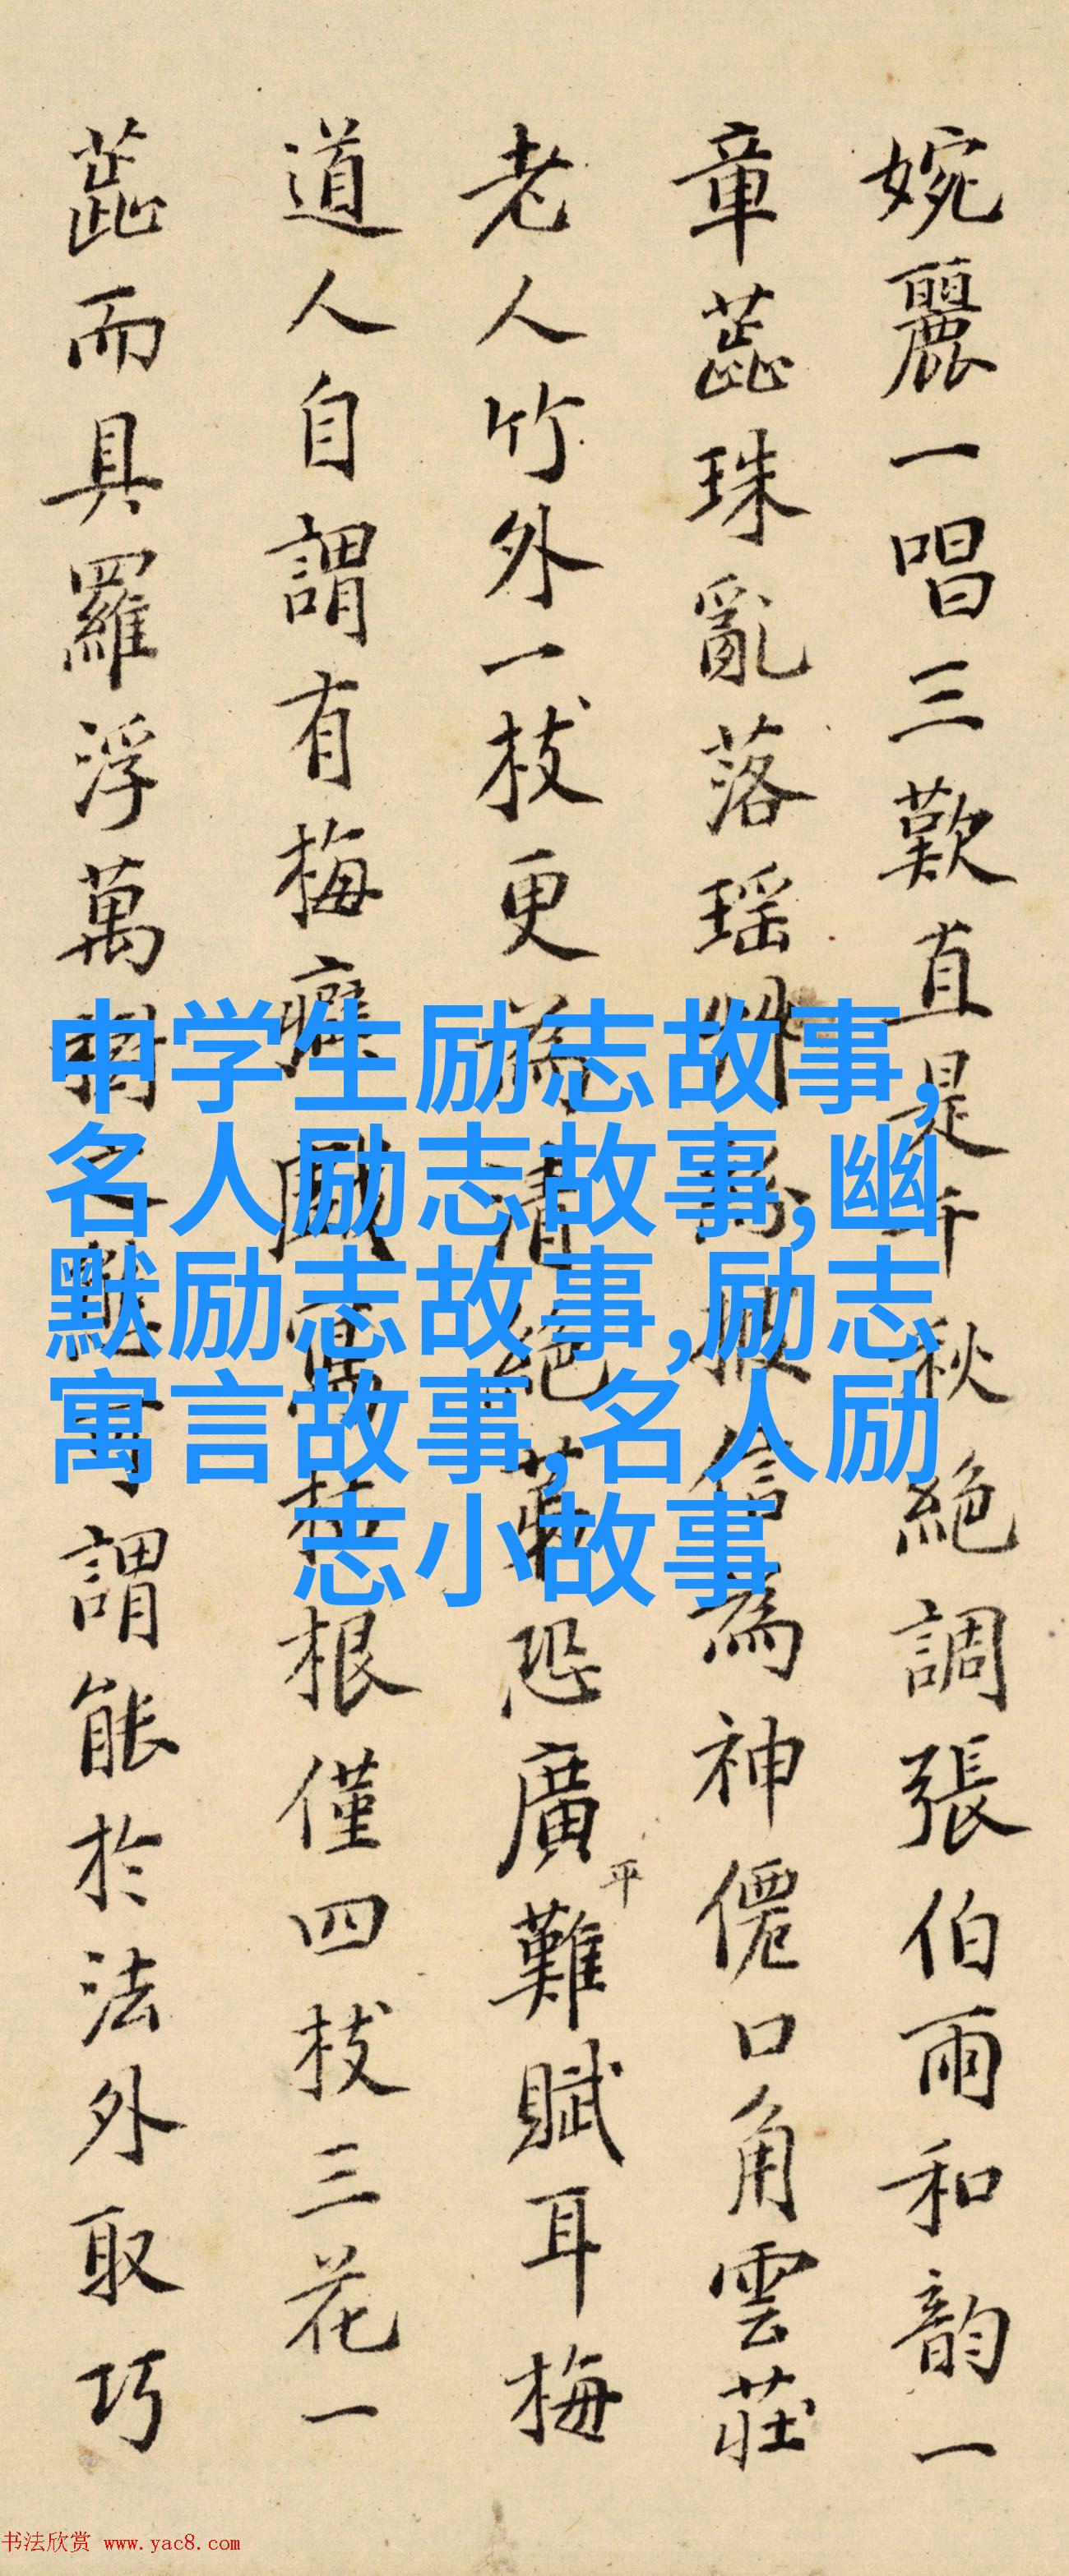 婉麗一唱三歎直是千秋絶調張伯雨和韵一
章蕊珠亂落瑶
信為神僊口角雲莊
老人竹外一枝更為清絶
恐廣平難賦耳梅
道人自謂有梅癖
根僅四枝三花一
蕊而具羅浮萬
謂能於法外取巧
中学生励志故事,
名人励志故事,幽
默励志故事,励志
寓言故事,名人励
志小故事
书法欣赏 www.yac8.com